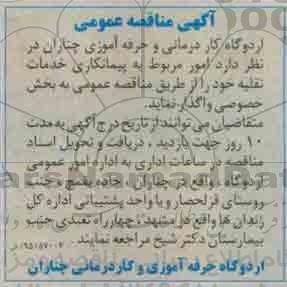 آگهی مناقصه عمومی
اردوگاه کار درمانی و حرفه آموزی چناران در
نظر دارد امور مربوط به پیمانکاری خدمات
نقلیه خود را از طریق مناقصه عمومی به بخش
خصوصی واگذار نماید.
متقاضیان می توانند از تاریخ درج آگهی به مدت
۱۰ روز جهت بازدید ، دریافت و تحویل اسناد
مناقصه در ساعات اداری به اداره امور عمومی
اردوگاه ، واقع در چناران ، جاده بقمچ ، جنب
روستای قزلحصار و یا واحد پشتیبانی اداره کل
زندان ها واقع در مشهد ، چهارراه نعبدی جنب
بیمارستان دکتر شیخ مراجعه نمایند .
اردوگاه حرفه آموزی و کاردرمانی چناران